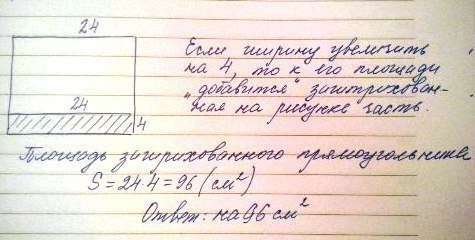 24
Если ширину увеличить
на 4, то к его площади
„добавится" заштрихован-
24
ная на рисунке часть.
4
Площадь заштрихованного прямоугольника
S = 24·4 = 96 (см²)
Ответ: на 96 см²